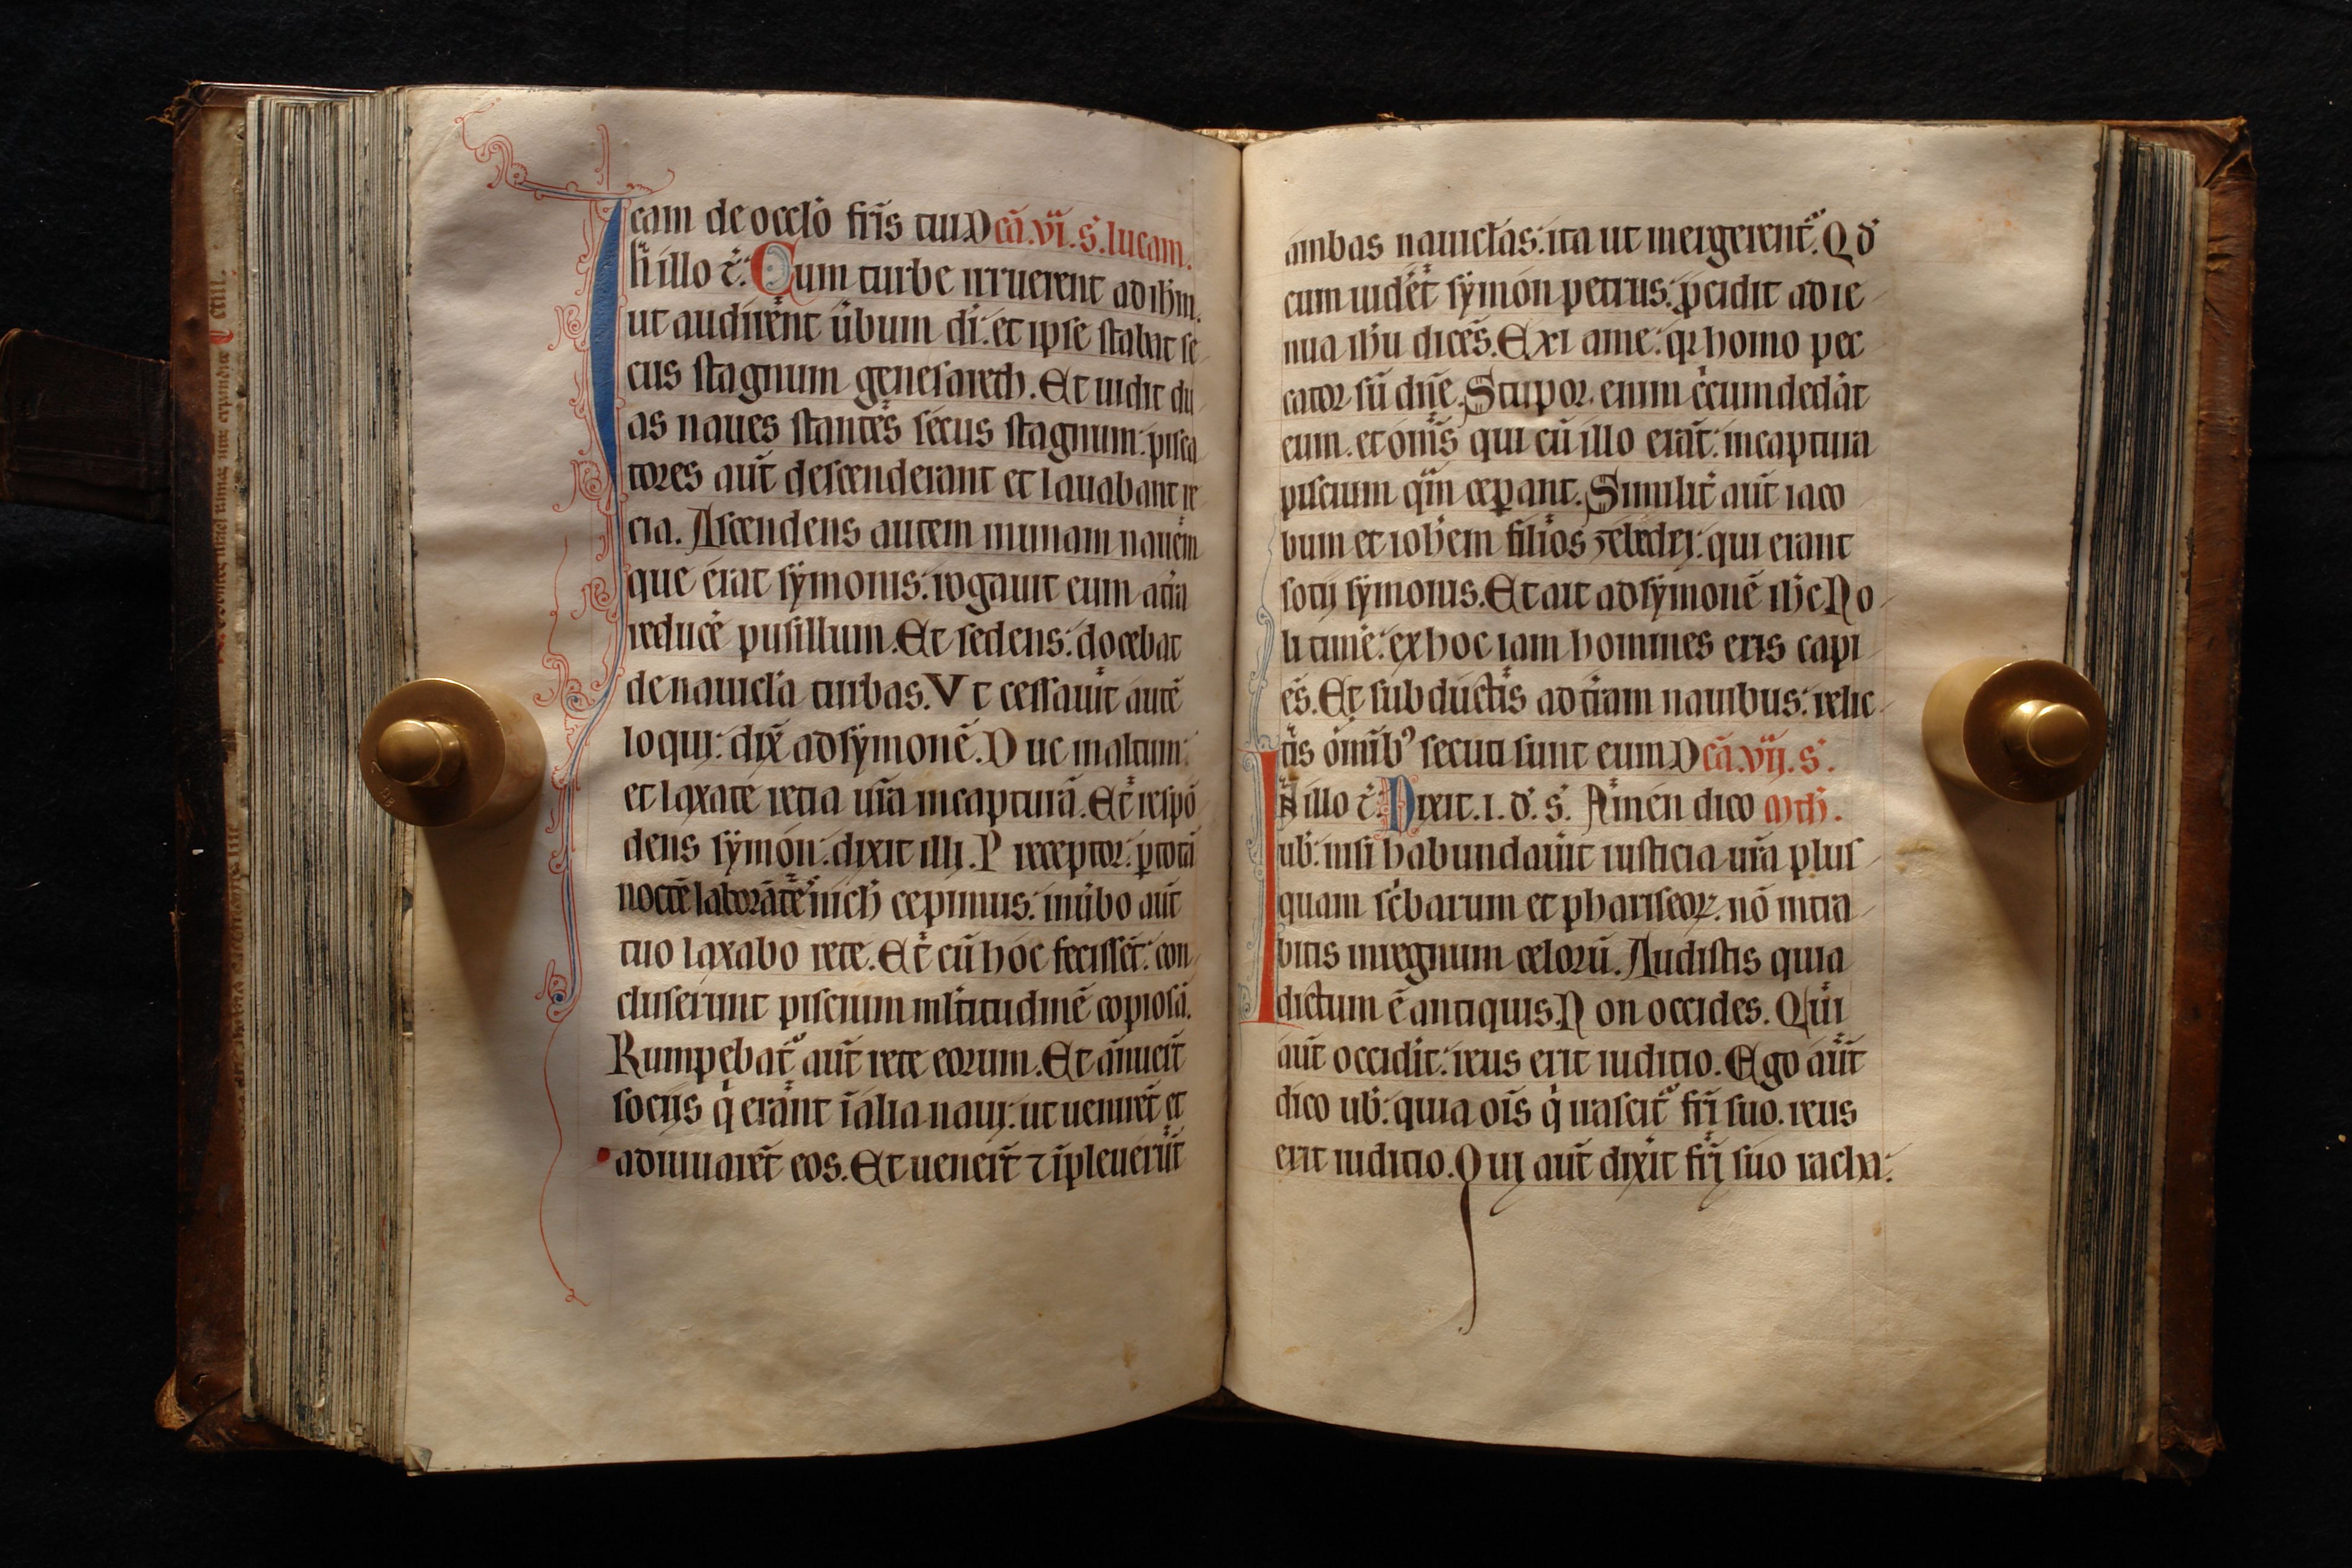 cam de occlo fr̄is tui. D cā. vi. s. lucam.
In illo t̄. Cum turbe irruerent ad ih̄m.
ut audirent ūbum di. et ipse stabat se
cus stagnum genesareth. Et uidit du
as naues stantes secus stagnum: pisca
tores aūt descenderant et lauabant re
cia. Ascendens autem in unam nauem
que erat symonis: rogauit eum a tr̄a
reducē pusillum. Et sedens: docebat
de nauicl̄a turbas. Vt cessauit autē
loqui: dix̄ ad symonē. Duc in altum:
et laxate retia ur̄a in capturā. Et respō
dens symon: dixit illi. Preceptor: ꝑ totā
noctē laborātes nich̄ cepimus: in ūbo aūt
tuo laxabo rete. Et cū hoc fecisset: con
cluserunt piscium mltitudinē copiosā.
Rumpebat᷑ aūt rete eorum. Et ānuert̄
sociis q̇ erant ī alia naui: ut uenirēt et
adiuuarēt eos. Et uenert̄ ⁊ īpleuerūt
ambas nauicl̄as: ita ut mergerent᷑. Qd̄
cum uidet̄ symon petrus: ꝓcidit ad ge
nua ih̄u dicēs. Exi a me: qꝛ homo pec
cator sū dn̄e. Stupor enim c̄cumdedāt
eum. et om̄s qui cū illo erāt: in captura
piscium q̄m ceꝑant. Similit̄ aūt iaco
bum et ioh̄em filios zebedei: qui erant
sotij symonis. Et ait ad symonē ih̄c No
li timē: ex hoc iam homines eris capi
ēs. Et subductis ad tr̄am nauibus: relic
tis om̄ib᷒ secuti sunt eum. D cā. vij. s.
In illo t̄. Dixit. i. d̄. s̄. Amen dico Mth̄.
ub̄: nisi habundauīt iusticia ur̄a plus
quam sc̄barum et phariseoꝝ. nō intra
bitis in regnum celorū. Audistis quia
dictum ē antiquis. Non occides. Qui
aūt occidīt: reus erit iuditio. Ego aūt
dico ub̄: quia oīs q̇ irascit᷑ fr̄i suo. reus
erit iuditio. Qui aūt dixīt fr̄i suo racha: